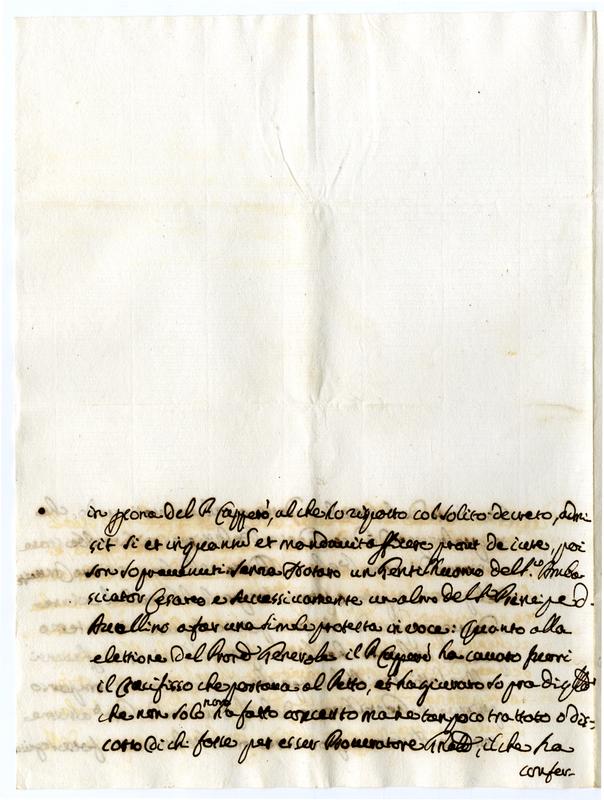 in persona del P. Capperò, al che ho risposto col solito decreto, admi
sit si et inquantum et mandavit afficere prout de iure, poi
son sopravenuti senza Notaro un Gentilhuomo del S.r Amba
sciator Cesareo e successivamente un altro del S.r Principe d'
Avellino a far una simile protesta in voce: Quanto alla
elettione del Procur Generale il P. Capperò ha cavato fuori
il Crucifisso che portava al Petto, et ha giurato sopra di
che non solo non ha fatto concerto ma ne tampoco trattato o dis-
corso di chi fosse per esser Procuratore Gnale, il che ha
confer-